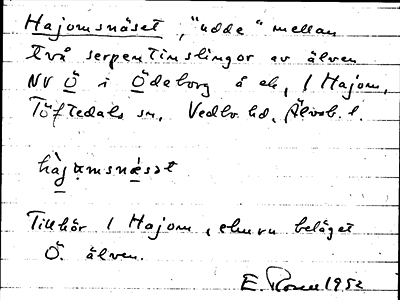 Hajomsnäset, "udde" mellan
två serpentinslingor av älven
NV Ö i Ödeborg å ek, 1 Hajom,
Töftedals sn, Vedbo hd, Älvsb. l.
hàjωmsnæ̀sət
Tillhör 1 Hajom, ehuru beläget
Ö. älven.
E. Rosell 1952